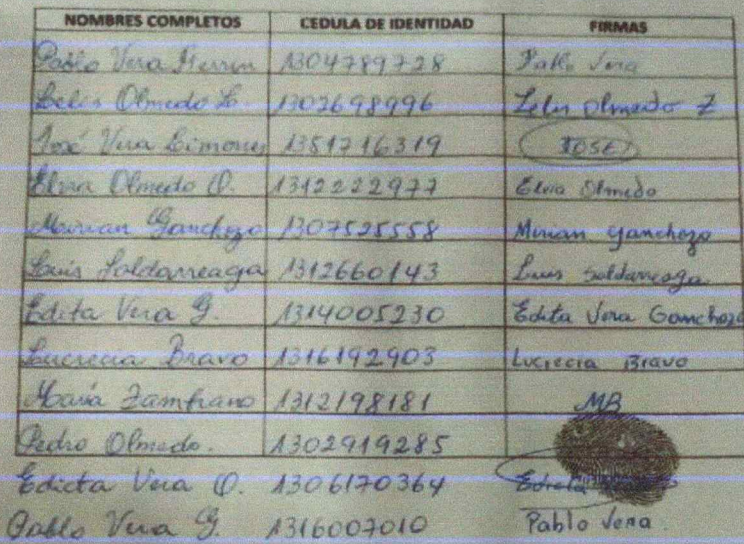 NOMBRES COMPLETOS CEDULA DE IDENTIDAD FIRMAS
Pablo Vera 1304789728 Pablo Vera
Olmedo Z. 1302698996 Olmedo Z
José Vera Limones 1351716319 JOSE
Elvia Olmedo O. 1312222977 Elvia Olmedo
Mirian Ganchozo 1307525558 Mirian ganchozo
Luis Saldarreaga 1312660143 Luis Saldarreaga
Edita Vera G. 1314005230 Edita Vera Ganchozo
Lucrecia Bravo 1316192903 Lucrecia Bravo
María Zambrano 1312198181 MB
Pedro Olmedo. 1302919285
Edicta Vera O. 1306170364 Edicta
Pablo Vera G. 1316007010 Pablo Vera.